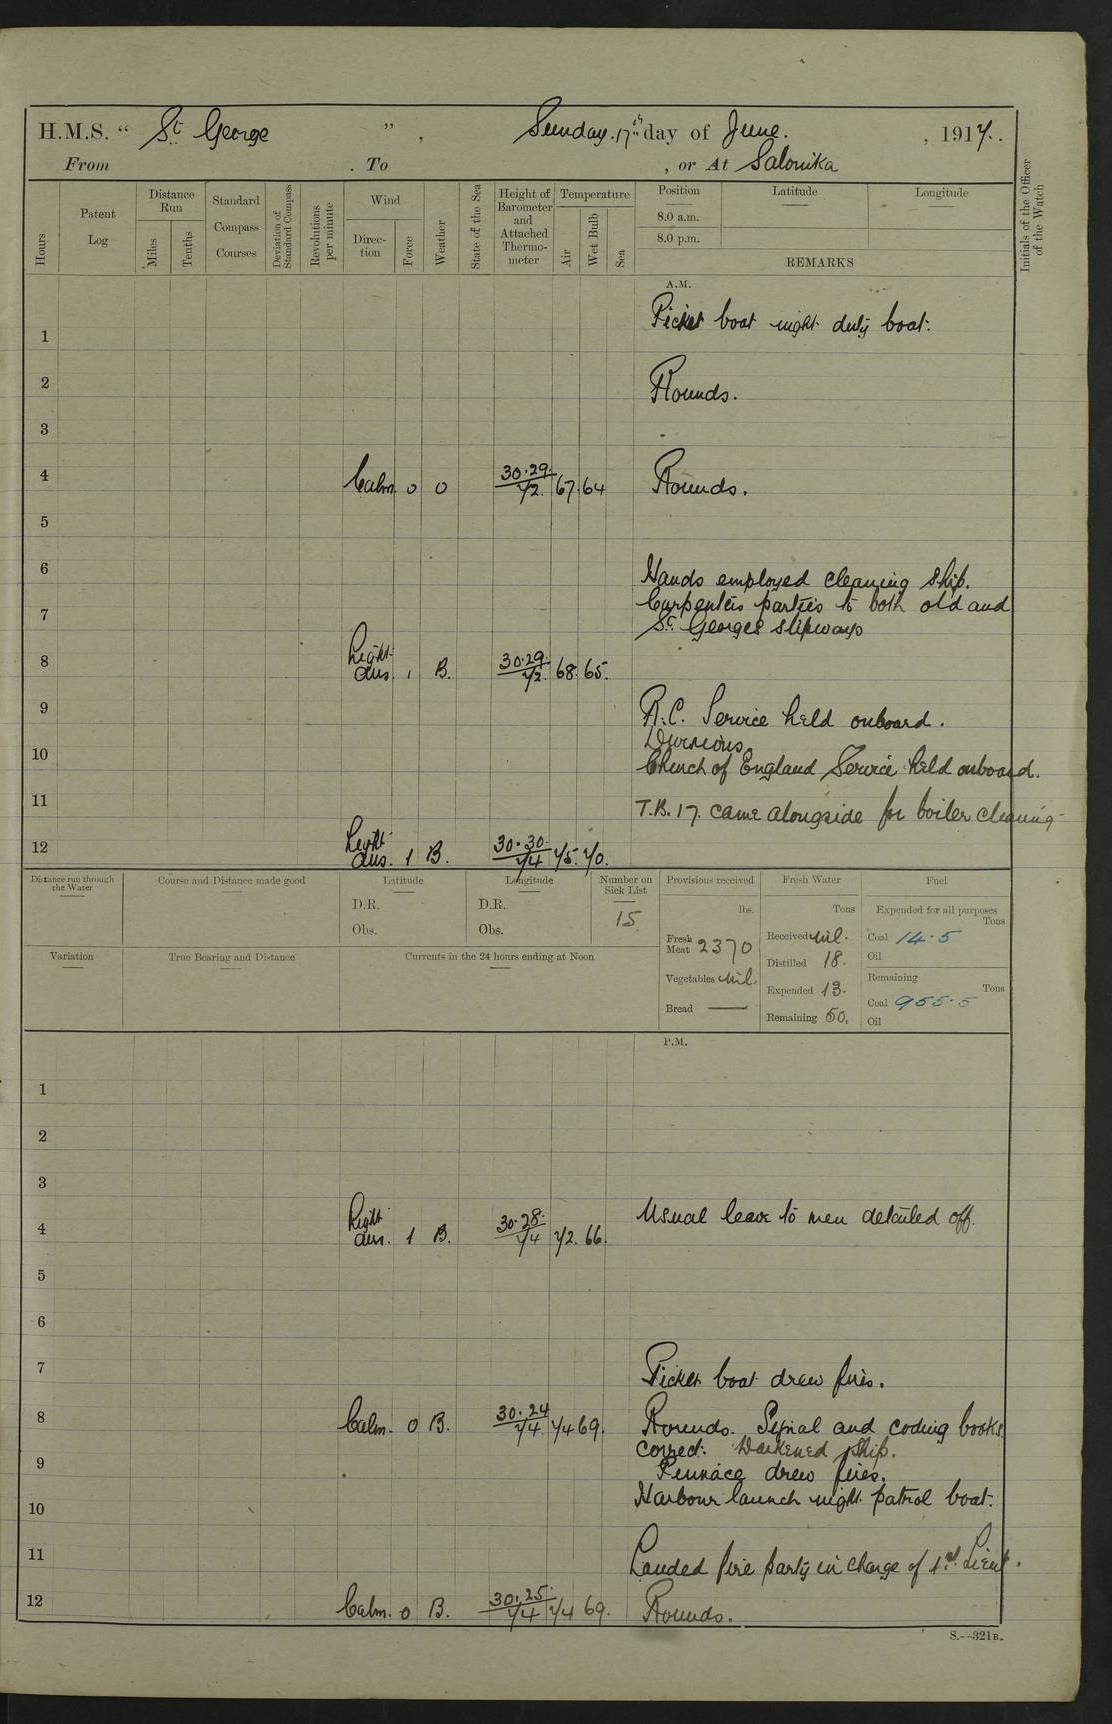 H.M.S. “ St George ” , Sunday. 17th day of June. , 1917.
From . To , or At Salonika
Hours
Patent Log
Distance Run
Miles
Tenths
Standard Compass Courses
Deviation of Standard Compass
Revolutions per minute
Wind
Direction
Force
Weather
State of the Sea
Height of Barometer and Attached Thermometer
Temperature
Air
Wet Bulb
Sea
Position
Latitude
Longitude
8.0 a.m.
8.0 p.m.
REMARKS
Initials of the Officer of the Watch
A.M.
1 Picket boat night duty boat.
2 Rounds.
3
4 Calm. 0 0 30.29 72. 67. 64 Rounds.
5
6 Hands employed cleaning ship.
Carpenters parties to both old and
7 St. Georges slipways
8 Light airs. 1 B. 30.29. 72. 68. 65.
9 R.C. Service held onboard.
Divisions
10 Church of England Service held onboard.
11 T.B. 17. came alongside for boiler cleaning
12 Light airs. 1 B. 30.30. 74 75. 70.
Distance run through the Water
Course and Distance made good
Latitude
D.R.
Obs.
Longitude
D.R.
Obs.
Number on Sick List
15
Provisions received
lbs.
Fresh Meat 2370
Vegetables Nil.
Bread —
Fresh Water
Tons
Received Nil.
Distilled 18.
Expended 13.
Remaining 50.
Fuel
Expended for all purposes
Tons
Coal 14.5
Oil
Remaining
Tons
Coal 955.5
Oil
Variation
True Bearing and Distance
Currents in the 24 hours ending at Noon
P.M.
1
2
3
4 Light airs. 1 B. 30.28. 74 72. 66. Usual leave to men detailed off.
5
6
7 Picket boat drew fires.
8 Calm. 0 B. 30.24 74. 74 69. Rounds. Signal and coding books
correct. Darkened ship.
9 Pinnace drew fires.
10 Harbour launch night patrol boat.
11 Landed fire party in charge of 1st Lieut.
12 Calm. 0 B. 30.25. 74 74 69. Rounds.
S.—321B.